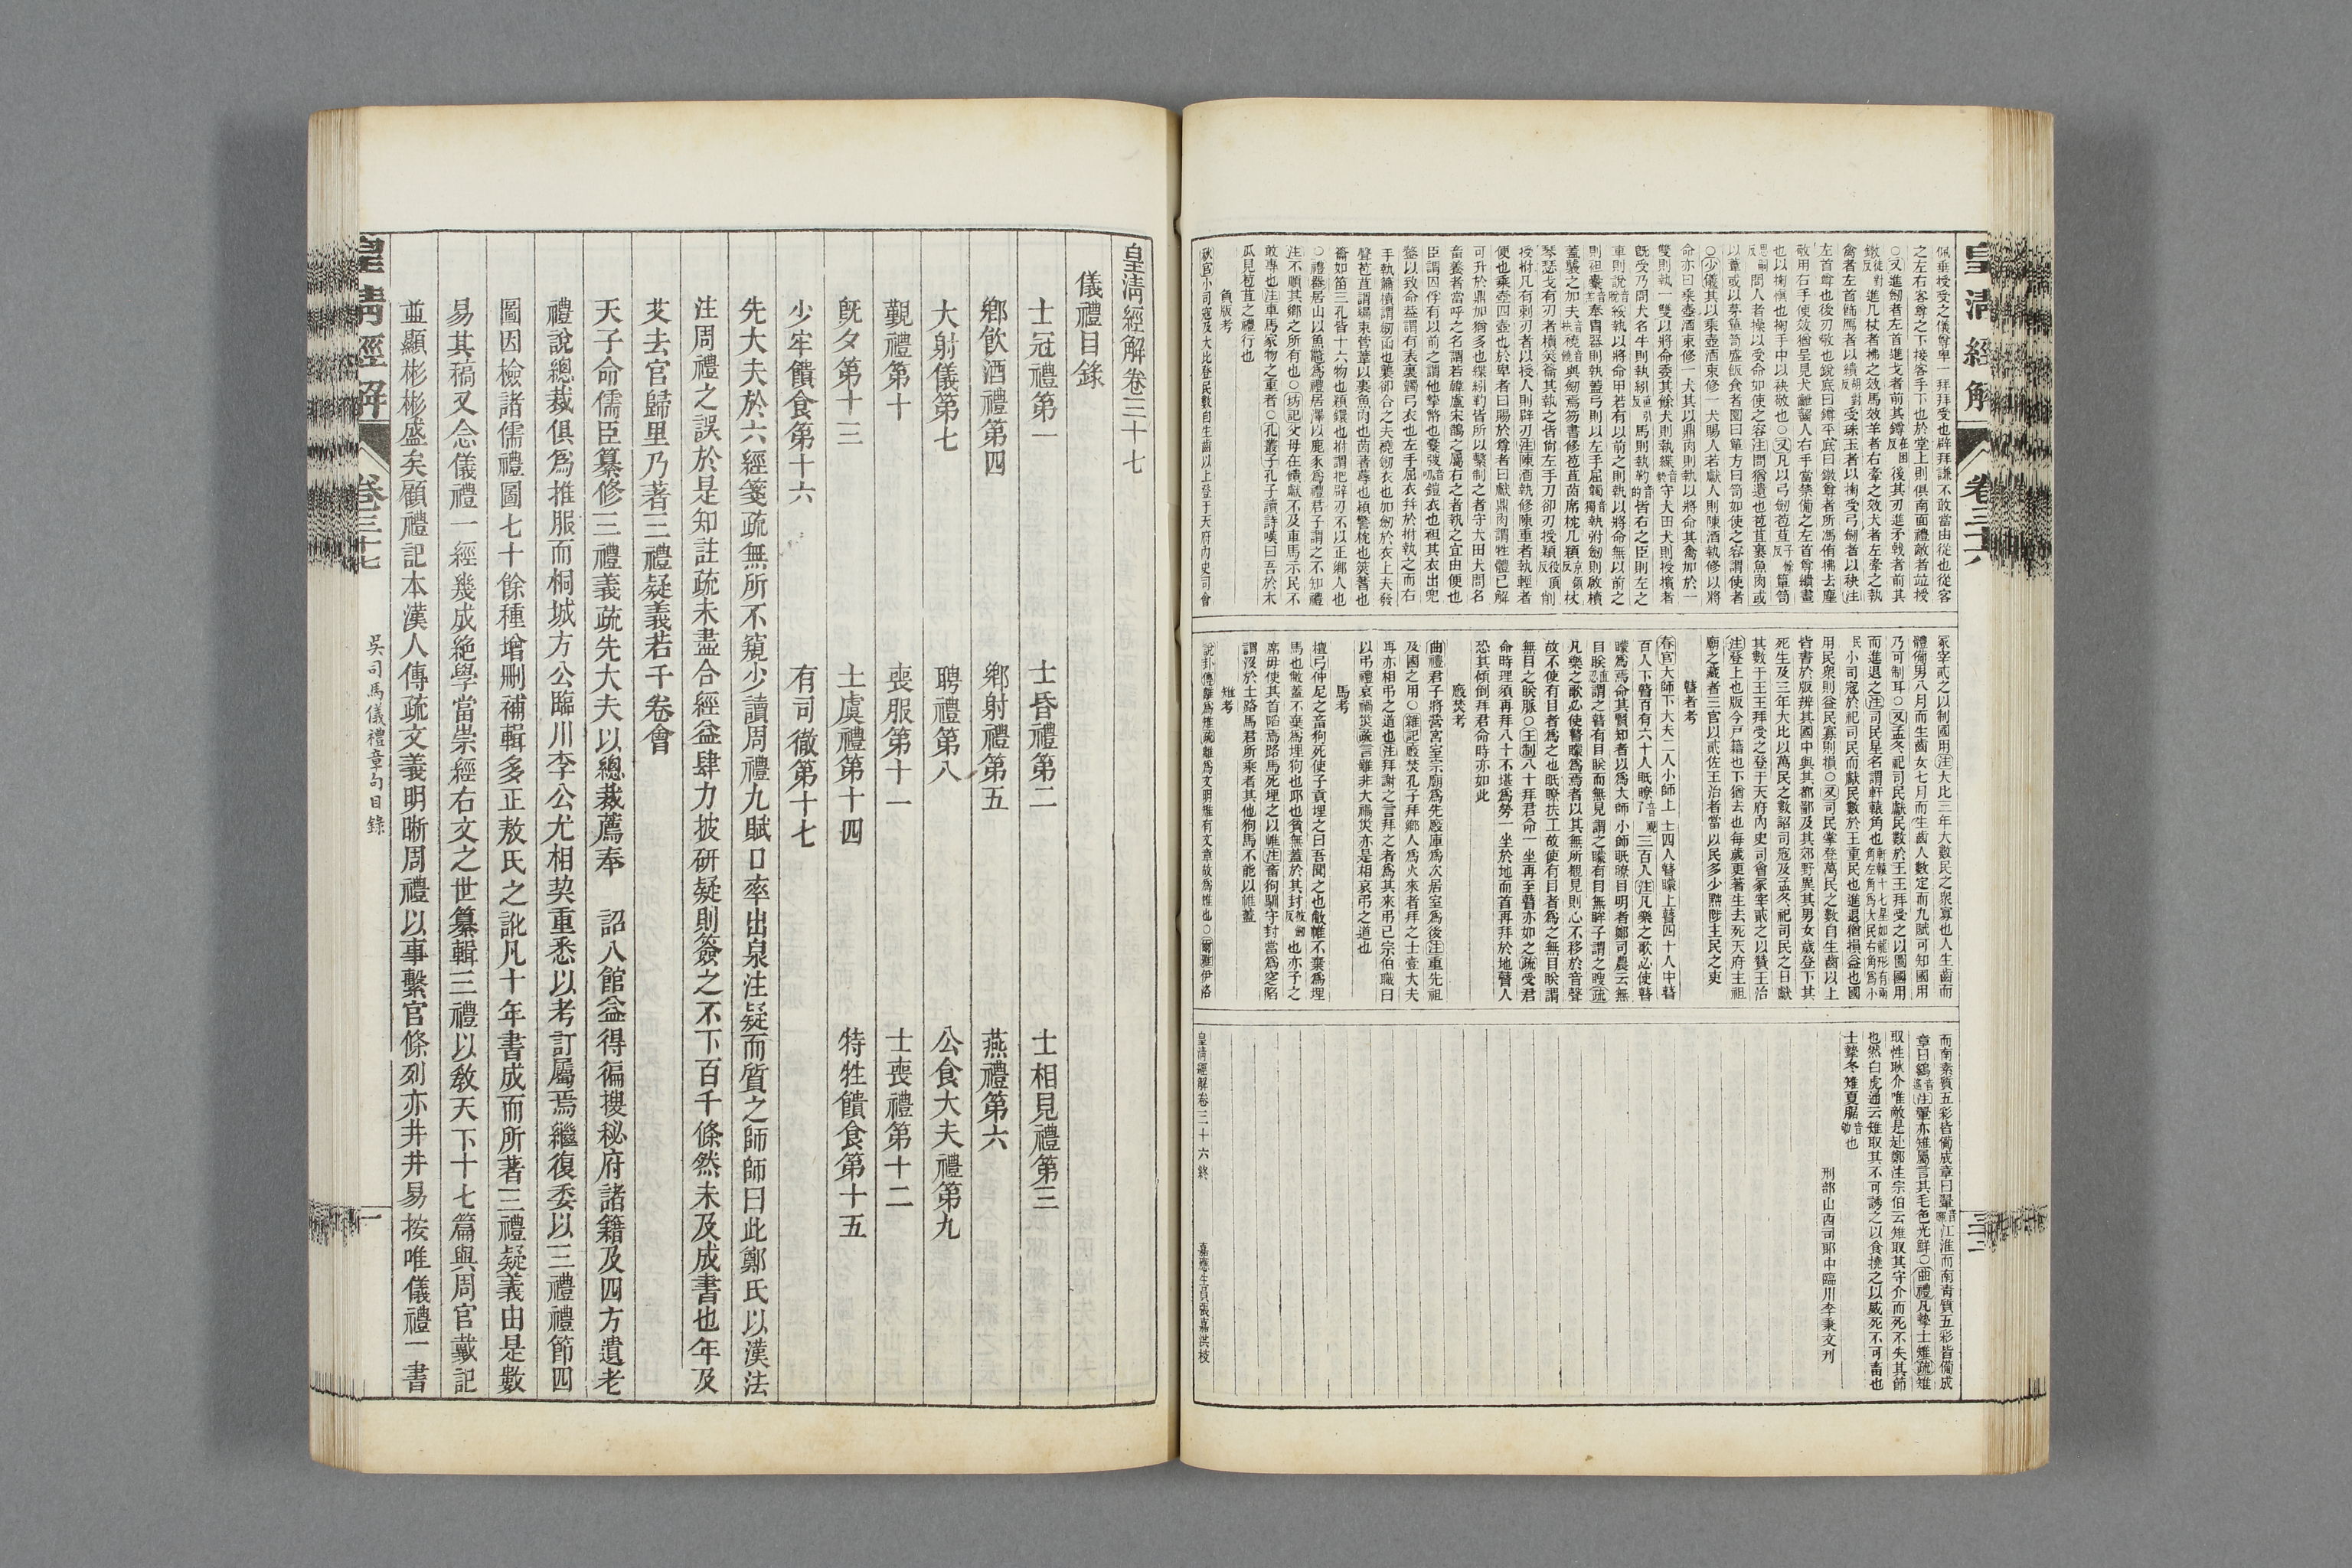 皇清經解
卷三十六
佩垂授受之儀尊卑一拜拜受也辟拜謙不敢當由從也從客
之左右客尊之下接客手下也於堂上則俱南面禮敵者竝授
○又進劒者左首進戈者前其鐏後其刃進矛戟者前其
鐓進几杖者拂之效馬效羊者右牽之效犬者左牽之執
禽者左首飾羔鴈者以繢受珠玉者以掬受弓劒者以袂注
左首尊也後刃敬也銳底曰鐏平底曰鐓尊者所馮侑拂去塵
敬用右手便效猶呈見犬齛齧人右手當禁備之左首尊繢畫
也以掬愼也掬手中以袂敬也○又凡以弓劒苞苴簞笥
問人者操以受命如使之容注問猶遺也苞苴裹魚肉或
以葦或以茅簞笥盛飯食者圜曰簞方曰笥如使之容謂使者
○少儀其以乘壺酒束修一犬賜人若獻人則陳酒執修以將
命亦曰乘壺酒束修一犬其以鼎肉則執以將命其禽加於一
雙則執一雙以將命委其餘犬則執緤守犬田犬則授擯者
旣受乃問犬名牛則執紖馬則執靮皆右之臣則左之
車則說綏執以將命甲若有以前之則執以將命無以前之
則袒櫜奉冑器則執蓋弓則以左手屈韣執拊劒則啟櫝
蓋襲之加夫橈與劒焉笏書修苞苴茵席枕几熲杖
琴瑟戈有刃者櫝筴籥其執之皆尙左手刀卻刃授穎削
授拊凡有刺刃者以授人則辟刃注陳酒執修陳重者執輕者
便也乘壺四壺也於卑者曰賜於尊者曰獻鼎肉謂牲體已解
可升於鼎加猶多也緤紖靮皆所以繫制之者守犬田犬問名
畜養者當呼之名謂若韓盧宋鵲之屬右之者執之宜由便也
臣謂囚俘有以前之謂他摯幣也櫜弢鎧衣也袒其衣出兜
鍪以致命蓋謂有表裏韣弓衣也左手屈衣幷於拊執之而右
手執簫櫝謂劒函也襲卻合之夫橈劒衣也加劒於衣上夫發
聲苞苴謂編束萑葦以裹魚肉也茵著蓐也熲警枕也筴蓍也
籥如笛三孔皆十六物也穎鐶也拊謂把辟刃不以正鄉人也
○禮器居山以魚鼈爲禮居澤以鹿豕爲禮君子謂之不知禮
注不順其鄉之所有也○坊記父母在饋獻不及車馬示民不
敢專也注車馬家物之重者○孔叢子孔子讀詩嘆曰吾於木
瓜見苞苴之禮行也
負版考
秋官小司寇及大比登民數自生齒以上登于天府內史司會
冢宰貳之以制國用注大比三年大數民之衆寡也人生齒而
體備男八月而生齒女七月而生齒人數定而九賦可知國用
乃可制耳○又孟冬祀司民獻民數於王王拜受之以圖國用
而進退之注司民星名謂軒轅角也
民小司寇於祀司民而獻民數於王重民也進退猶損益也國
用民衆則益民寡則損○又司民掌登萬民之數自生齒以上
皆書於版辨其國中與其都鄙及其郊野異其男女歲登下其
死生及三年大比以萬民之數詔司寇及孟冬祀司民之日獻
其數于王王拜受之登于天府內史司會冢宰貳之以贊王治
注登上也版今戸籍也下猶去也每歲更著生去死天府主祖
廟之藏者三官以貳佐王治者當以民多少黜陟主民之吏
瞽者考
春官大師下大夫二人小師上士四人瞽矇上瞽四十人中瞽
百人下瞽百有六十人眡瞭三百人注凡樂之歌必使瞽
矇爲焉命其賢知者以爲大師小師眡瞭目明者鄭司農云無
目眹謂之瞽有目眹而無見謂之矇有目無眸子謂之瞍疏
凡樂之歌必使瞽矇爲焉者以其無所覩見則心不移於音聲
故不使有目者爲之也眡瞭扶工故使有目者爲之無目眹謂
無目之眹脈○王制八十拜君命一坐再至瞽亦如之疏受君
命時理須再拜八十不堪爲勞一坐於地而首再拜於地瞽人
恐其傾倒拜君命時亦如此
廄焚考
曲禮君子將營宮室宗廟爲先廄庫爲次居室爲後注重先祖
及國之用○雜記廄焚孔子拜鄉人爲火來者拜之士壹大夫
再亦相弔之道也注拜謝之言拜之者爲其來弔已宗伯職曰
以弔禮哀禍災疏言雖非大禍災亦是相哀弔之道也
馬考
檀弓仲尼之畜狗死使子貢埋之曰吾聞之也敝帷不棄爲埋
馬也敝蓋不棄爲埋狗也丘也貧無蓋於其封也亦予之
席毋使其首陷焉路馬死埋之以帷注畜狗馴守封當爲窆陷
謂沒於土路馬君所乘者其他狗馬不能以帷蓋
雉考
說卦傳離爲雉疏離爲文明雉有文章故爲雉也○爾雅伊洛
而南素質五彩皆備成章曰翬江淮而南靑質五彩皆備成
章曰鷂注翬亦雉屬言其毛色光鮮○曲禮凡摯士雉疏雉
取性耿介唯敵是赴鄭注宗伯云雉取其守介而死不失其節
也然白虎通云雉取其不可誘之以食撓之以威死不可畜也
士摯冬雉夏腒也
刑部山西司郎中臨川李秉文刋
皇淸經解卷三十六終
嘉應生員張嘉洪校
皇淸經解卷三十七
儀禮目錄
士冠禮第一　士昏禮第二　士相見禮第三
鄉飮酒禮第四　鄉射禮第五　燕禮第六
大射儀第七　聘禮第八　公食大夫禮第九
覲禮第十　喪服第十一　士喪禮第十二
旣夕第十三　士虞禮第十四　特牲饋食第十五
少牢饋食第十六　有司徹第十七
先大夫於六經箋疏無所不窺少讀周禮九賦口率出泉注疑而質之師師曰此鄭氏以漢法
注周禮之誤於是知註疏未盡合經益肆力披硏疑則簽之不下百千條然未及成書也年及
艾去官歸里乃著三禮疑義若干卷會
天子命儒臣纂修三禮義疏先大夫以總裁薦奉　詔入館益得徧搜秘府諸籍及四方遺老
禮說總裁俱爲推服而桐城方公臨川李公尤相契重悉以考訂屬焉繼復委以三禮禮節四
圖因檢諸儒禮圖七十餘種增刪補輯多正敖氏之訛凡十年書成而所著三禮疑義由是數
易其稿又念儀禮一經幾成絶學當崇經右文之世纂輯三禮以敎天下十七篇與周官戴記
並顯彬彬盛矣顧禮記本漢人傳疏文義明晰周禮以事繫官條列亦井井易按唯儀禮一書
皇淸經解
卷三十七
吳司馬儀禮章句目錄
一